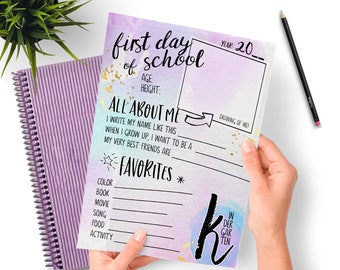 first day of school
YEAR: 20__
AGE:
HEIGHT:
DRAWING OF ME!
ALL ABOUT ME
I WRITE MY NAME LIKE THIS
WHEN I GROW UP, I WANT TO BE A
MY VERY BEST FRIENDS ARE
FAVORITES
COLOR
BOOK
MOVIE
SONG
FOOD
ACTIVITY
k
IN
DER
GAR
TEN